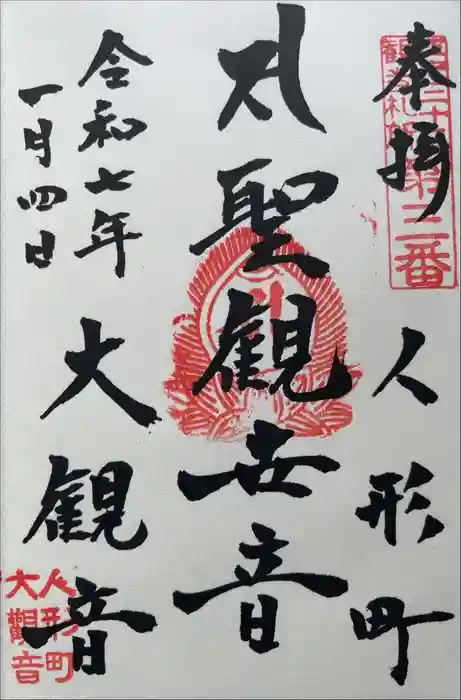 奉拝
第三番
人形町
聖観世音
令和七年
一月四日
大観音
人形町
大觀音